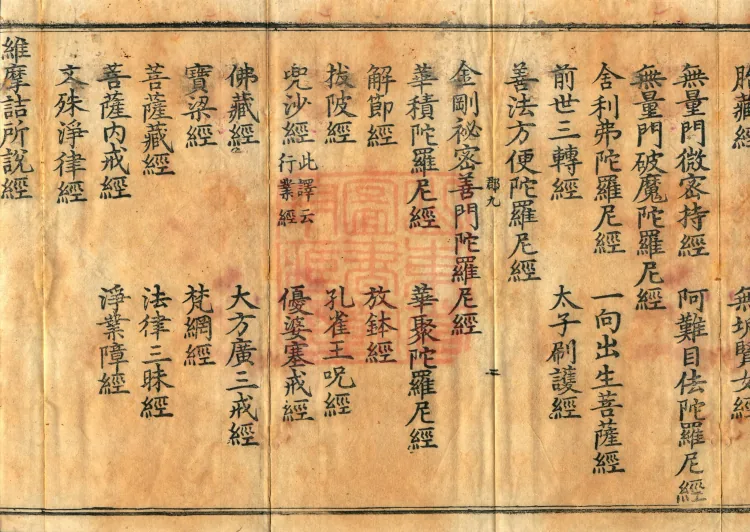 胎藏經 無垢賢女經
無量門微密持經 阿難目佉陀羅尼經
無量門破魔陀羅尼經
舍利弗陀羅尼經 一向出生菩薩經
前世三轉經 太子刷護經
善法方便陀羅尼經
郡九 二
金剛祕密善門陀羅尼經
華積陀羅尼經 華聚陀羅尼經
解節經 放鉢經
拔陂經 孔雀王呪經
兜沙經 此譯云行業經 優婆塞戒經
佛藏經 大方廣三戒經
寶梁經 梵網經
菩薩藏經 法律三昧經
菩薩内戒經 淨業障經
文殊淨律經
維摩詰所說經